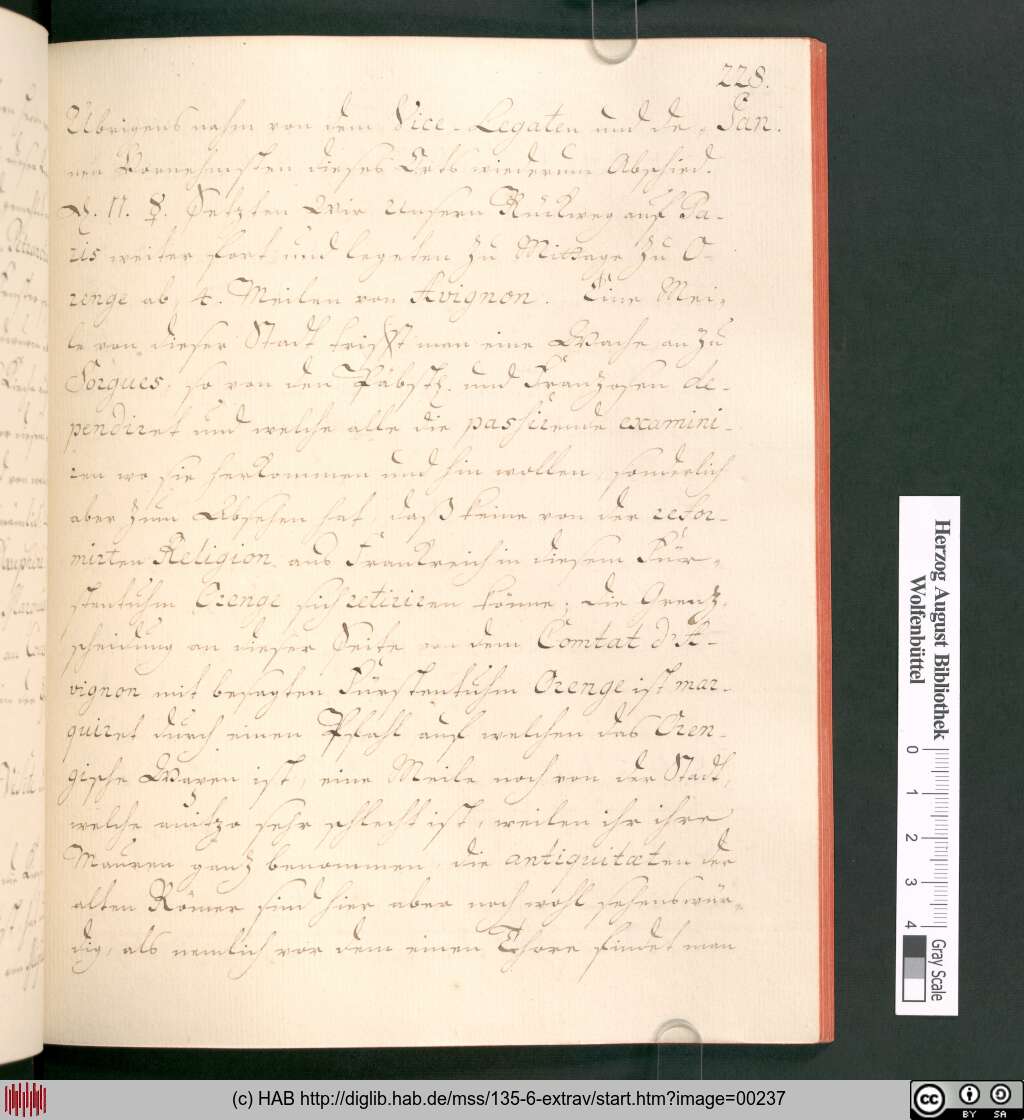 228.
Übrigens nahm von dem Vice-Legaten und de-
nen Vornehmsten dieses Orts wiederum Abschied.
D. 11. ☿. Setzten Wir Unsern Rükweg auf Pa-
ris weiter fort und legeten zu Mittage zu O-
renge ab, 4. Meilen von Avignon. Eine Mei-
le von dieser Stadt trifft man eine Wache an zu
Sorgues, so von den Päbstl. und Franzosen de-
pendiret und welche alle die passirende examini-
ren wo sie herkommen und hin wollen, sonderlich
aber zum Absehen hat, daß keine von der refor-
mirten Religion aus Frankreich in diesem Für-
stentuhm Orenge sich retiriren könne; die Grenz-
scheidung an dieser Seite von dem Comtat d'A-
vignon mit besagten Fürstentuhm Orenge ist mar-
quiret durch einen Pfahl auf welchen das Oren-
gische Wapen ist, eine Meile noch von der Stadt,
welche anitzo sehr schlecht ist, weilen ihr ihre
Mauren ganz benommen, die antiquitæten der
alten Römer sind hier aber noch wohl sehenswür-
dig, als nemlich vor dem einen Thore findet man
Herzog August Bibliothek
Wolfenbüttel
0 1 2 3 4
Gray Scale
(c) HAB http://diglib.hab.de/mss/135-6-extrav/start.htm?image=00237
cc BY SA